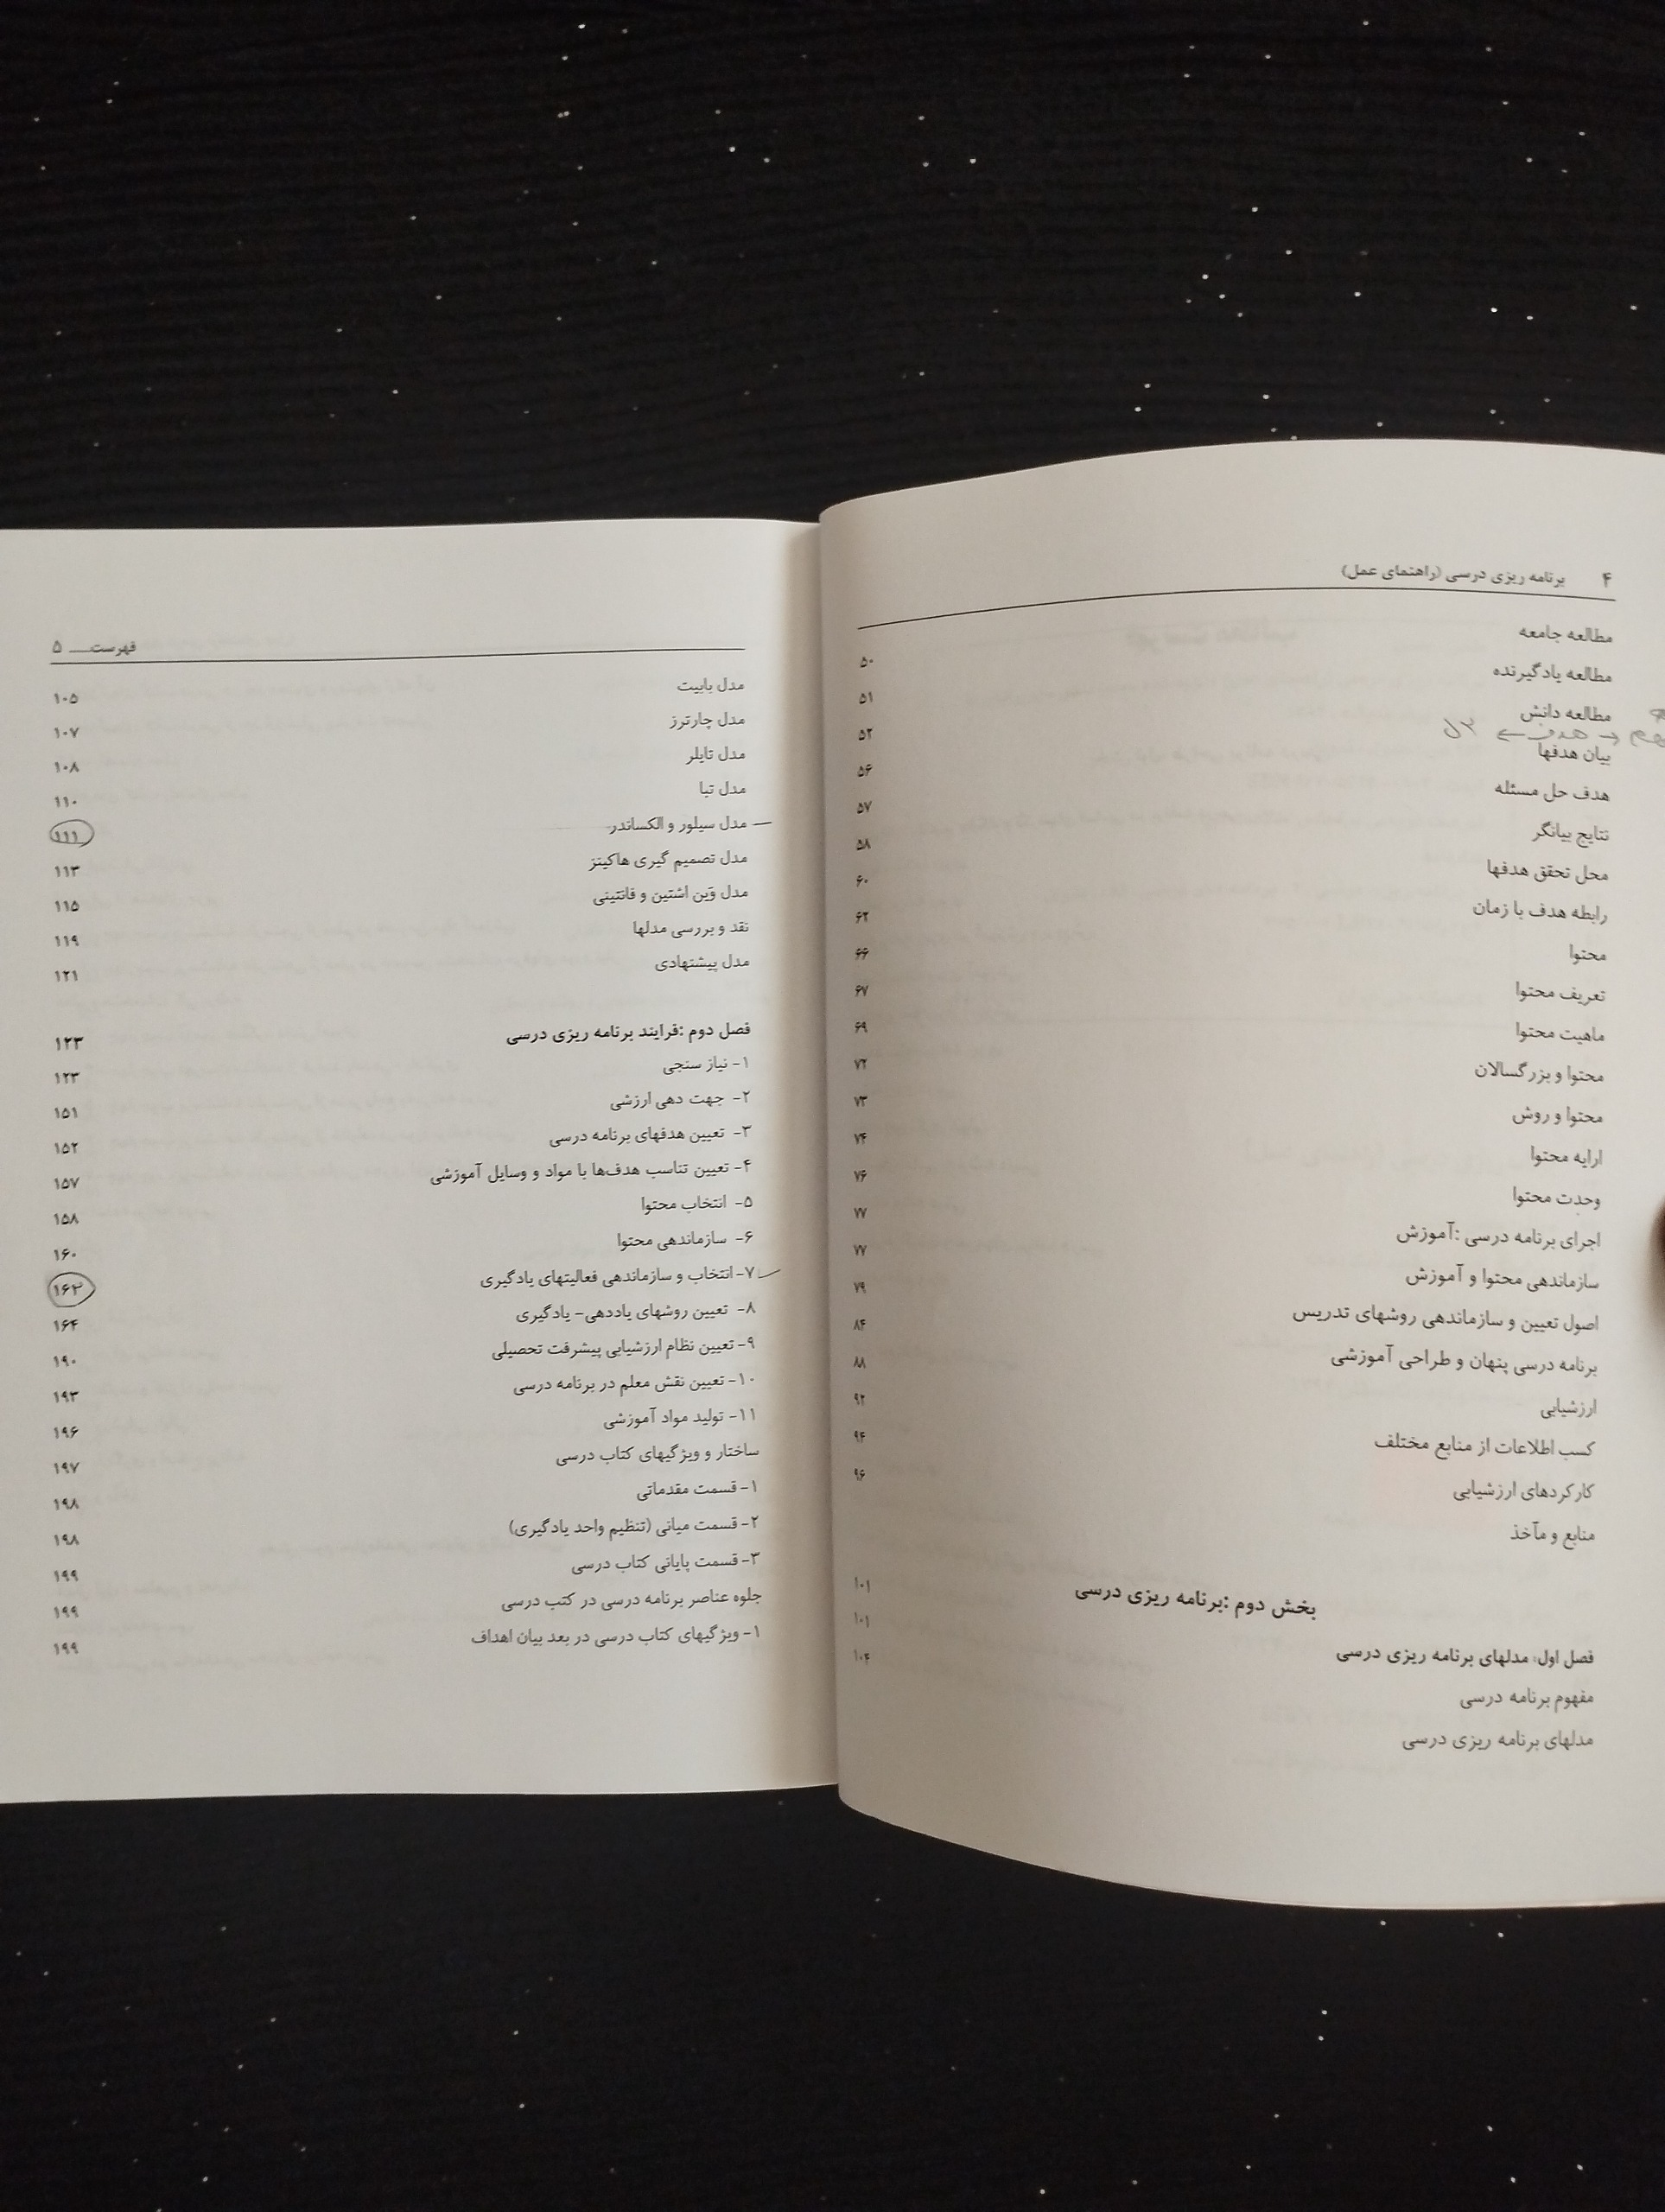 ۴ برنامه ریزی درسی (راهنمای عمل)
مطالعه جامعه ۵۰
مطالعه یادگیرنده ۵۱
مطالعه دانش ۵۲
هدف
بیان هدفها ۵۶
هدف حل مسئله ۵۷
نتایج بیانگر ۵۸
محل تحقق هدفها ۶۰
رابطه هدف با زمان ۶۲
محتوا ۶۶
تعریف محتوا ۶۷
ماهیت محتوا ۶۹
محتوا و بزرگسالان ۷۲
محتوا و روش ۷۳
ارایه محتوا ۷۴
وحدت محتوا ۷۶
اجرای برنامه درسی :آموزش ۷۷
سازماندهی محتوا و آموزش ۷۷
اصول تعیین و سازماندهی روشهای تدریس ۷۹
برنامه درسی پنهان و طراحی آموزشی ۸۴
ارزشیابی ۸۸
کسب اطلاعات از منابع مختلف ۹۲
کارکردهای ارزشیابی ۹۴
منابع و مآخذ ۹۶
بخش دوم :برنامه ریزی درسی
فصل اول: مدلهای برنامه ریزی درسی ۱۰۱
مفهوم برنامه درسی ۱۰۱
مدلهای برنامه ریزی درسی ۱۰۴
فهرست ۵
مدل بابیت ۱۰۵
مدل چارترز ۱۰۷
مدل تایلر ۱۰۸
مدل تبا ۱۱۰
مدل سیلور و الکساندر ۱۱۱
مدل تصمیم گیری هاکینز ۱۱۳
مدل وَین اشتین و فانتینی ۱۱۵
نقد و بررسی مدلها ۱۱۹
مدل پیشنهادی ۱۲۱
فصل دوم :فرایند برنامه ریزی درسی ۱۲۳
۱- نیاز سنجی ۱۲۳
۲- جهت دهی ارزشی ۱۵۱
۳- تعیین هدفهای برنامه درسی ۱۵۲
۴- تعیین تناسب هدف‌ها با مواد و وسایل آموزشی ۱۵۷
۵- انتخاب محتوا ۱۵۸
۶- سازماندهی محتوا ۱۶۰
۷- انتخاب و سازماندهی فعالیتهای یادگیری ۱۶۲
۸- تعیین روشهای یاددهی- یادگیری ۱۶۴
۹- تعیین نظام ارزشیابی پیشرفت تحصیلی ۱۹۰
۱۰- تعیین نقش معلم در برنامه درسی ۱۹۳
۱۱- تولید مواد آموزشی ۱۹۶
ساختار و ویژگیهای کتاب درسی ۱۹۷
۱- قسمت مقدماتی ۱۹۸
۲- قسمت میانی (تنظیم واحد یادگیری) ۱۹۸
۳- قسمت پایانی کتاب درسی ۱۹۹
جلوه عناصر برنامه درسی در کتب درسی ۱۹۹
۱- ویژگیهای کتاب درسی در بعد بیان اهداف ۱۹۹